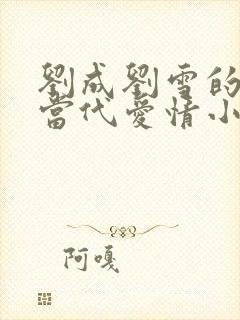 劉成劉雪的
當代愛情小
阿嘎